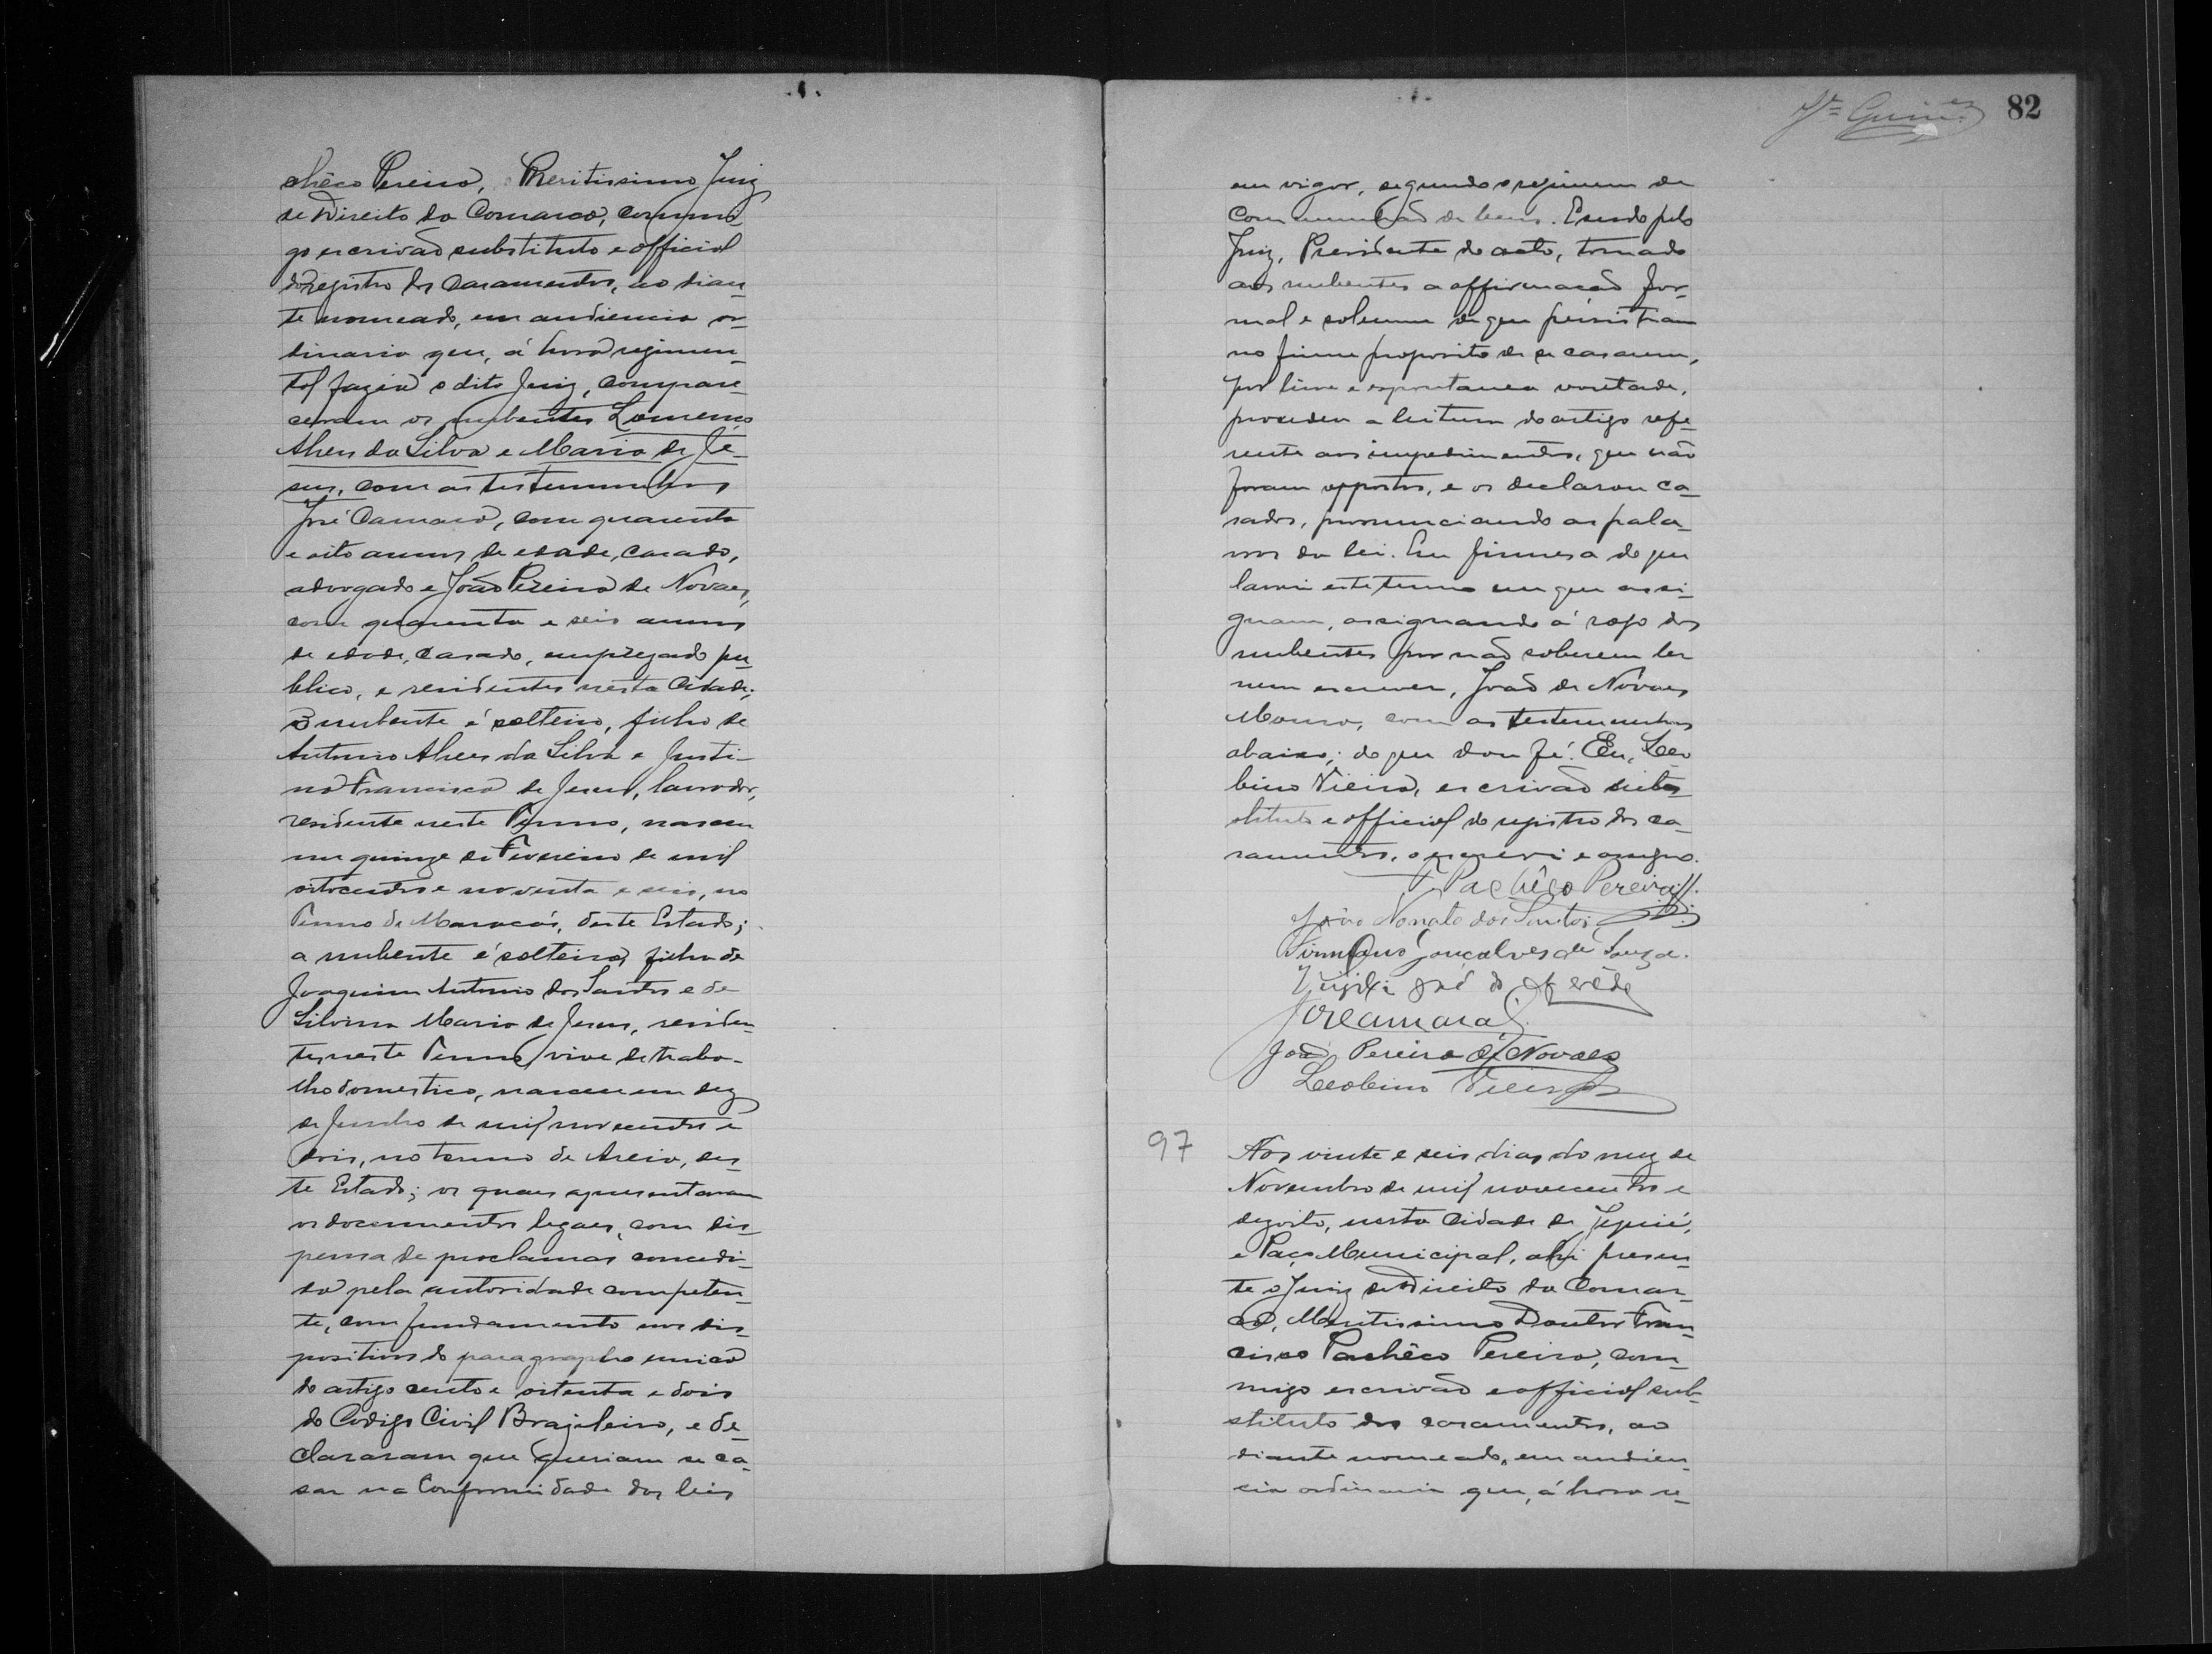 chêco Pereira, Meritissimo Juiz
de Direito da Comarca, commi
go escrivaõ substituto e official
do registro dos casamentos, ao dian-
te nomeado, em audiencia or-
dinaria que, á hora regimen-
tal fazia o dito Juiz, compare
ceram os nubentes Lourenço
Alves da Silva e Maria de Je-
sus, com as testemunhas
José Camara, com quarenta
e oito annos de edade, casado,
advogado e Joaõ Pereira de Novaes,
com quarenta e seis annos
de edade, casado, empregado pu-
blico, e residentes nesta Cidade;
o nubente é solteiro, filho de
Antonio Alves da Silva e Justi-
na Francisca de Jesus, lavrador,
residente neste Termo, nasceu
em quinze de Fevereiro de mil
oitocentos e noventa e seis, no
Termo de Maracás, deste Estado;
a nubente é solteira, filha de
Joaquim Antonio dos Santos e de
Silvina Maria de Jesus, residen-
tes neste Termo, vive de traba-
lho domestico, nasceu em dez
de Junho de mil novecentos e
dois, no termo de Areia, des-
te Estado; os quaes apresentaram
os documentos legaes, com dis-
pensa de proclamas concedi-
da pela autoridade competen-
te, com fundamento nos dis-
positivos do paragrapho unico
do artigo cento e oitenta e dois
do Codigo Civil Brazileiro, e de-
clararam que queriam se ca-
sar na Conformidade das leis
82
em vigor, segundo o regimem de
communhaõ de bens. E sendo pelo
Juiz, Presidente do acto, tomado
aos nubentes a affirmacaõ for-
mal e solemne de que persistiam
no firme proposito de se casarem,
por livre e espontanea vontade,
procedeu a leitura do artigo refe-
rente aos impedimentos, que não
foram oppostos, e os declarou ca-
sados, pronunciando as pala-
vras da lei. Em firmesa do que
lavrei este termo em que assi-
gnam, assignando á rogo dos
nubentes por naõ saberem ler
nem escrever, Joaõ de Novaes
Moura, com as testemunhas
abaixo; do que dou fé. Eu, Leo
bino Vieira, escrivaõ subs-
stituto e official do registro dos ca-
samentos, o escrevi e assigno.
F. Pachêco Pereira
João Nonato dos Santos
Firmino Gonçalves de Souza.
José Camara
Joaõ Pereira de Novaes
Leobino Vieira
97
Aos vinte e seis dias do mez de
Novembro de mil novecentos e
dezoito, nesta Cidade de Jequié,
e Paço Municipal, ahi presen-
te o Juiz de Direito da Comar-
ca, Meritissimo Doutor Fran-
cisco Pachêco Pereira, com-
migo escrivaõ e official sub-
stituto dos casamentos, ao
diante nomeado, em audien-
cia ordinaria que, á hora re-